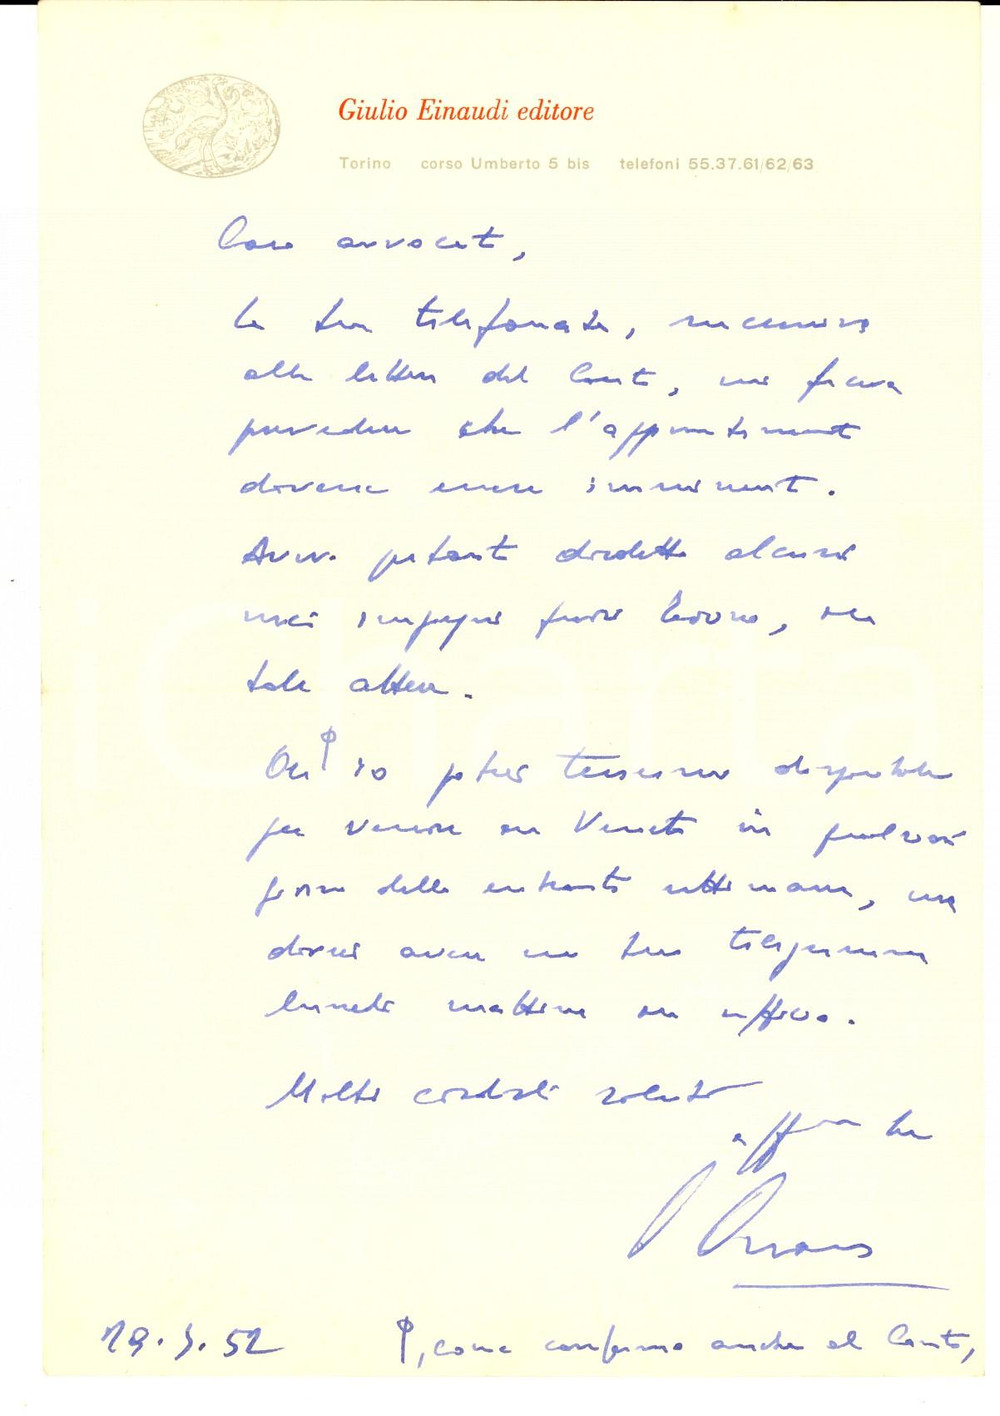 Giulio Einaudi editore
Torino corso Umberto 5 bis telefoni 55.37.61/62/63
Caro avvocato,
la sua telefonata, successiva
alla lettera del Conte, mi faceva
prevedere che l'appuntamento
dovesse essere imminente.
Avevo pertanto disdetto alcuni
miei impegni fuori Torino, in
tale attesa.
Ora φ io potrei tenermi disponibile
per venire in Veneto in qualsiasi
giorno della entrante settimana, ma
dovrei avere un suo telegramma
lunedì mattina in ufficio.
Molti cordiali saluti
aff.mo
φ, come confermo anche al Conte,